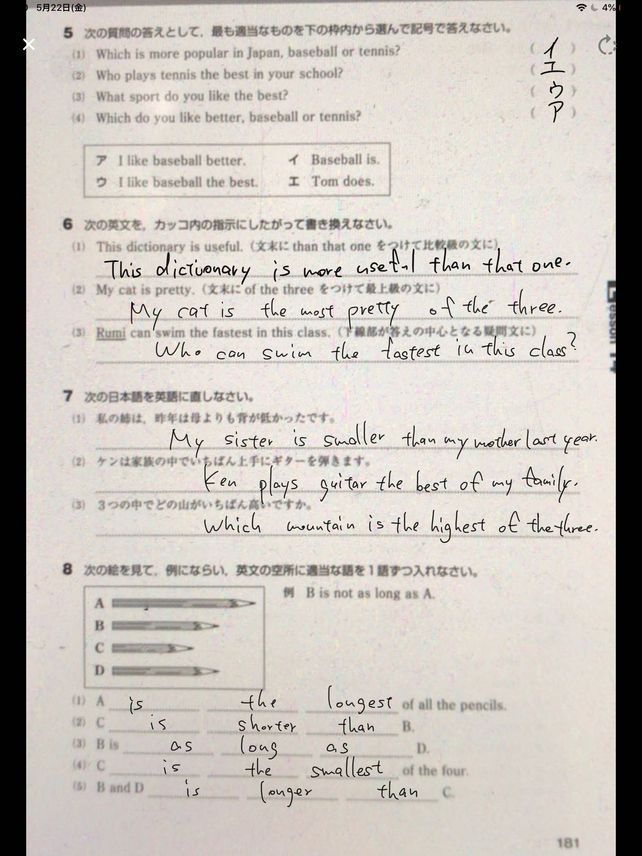 5月22日(金)
4%
5 次の質問の答えとして，最も適当なものを下の枠内から選んで記号で答えなさい。
(1) Which is more popular in Japan, baseball or tennis? ( イ )
(2) Who plays tennis the best in your school? ( エ )
(3) What sport do you like the best? ( ウ )
(4) Which do you like better, baseball or tennis? ( ア )
ア I like baseball better. イ Baseball is.
ウ I like baseball the best. エ Tom does.
6 次の英文を，カッコ内の指示にしたがって書き換えなさい。
(1) This dictionary is useful.（文末に than that one をつけて比較級の文に）
This dictuonary is more useful than that one.
(2) My cat is pretty.（文末に of the three をつけて最上級の文に）
My cat is the most pretty of the three.
(3) Rumi can swim the fastest in this class.（下線部が答えの中心となる疑問文に）
Who can swim the fastest in this class?
7 次の日本語を英語に直しなさい。
(1) 私の姉は，昨年は母よりも背が低かったです。
My sister is smaller than my mother last year.
(2) ケンは家族の中でいちばん上手にギターを弾きます。
Ken plays guitar the best of my family.
(3) 3つの中でどの山がいちばん高いですか。
Which mountain is the highest of the three.
8 次の絵を見て，例にならい，英文の空所に適当な語を1語ずつ入れなさい。
例 B is not as long as A.
A
B
C
D
(1) A is the longest of all the pencils.
(2) C is shorter than B.
(3) B is as long as D.
(4) C is the smallest of the four.
(5) B and D is longer than C.
Lesson 14
181